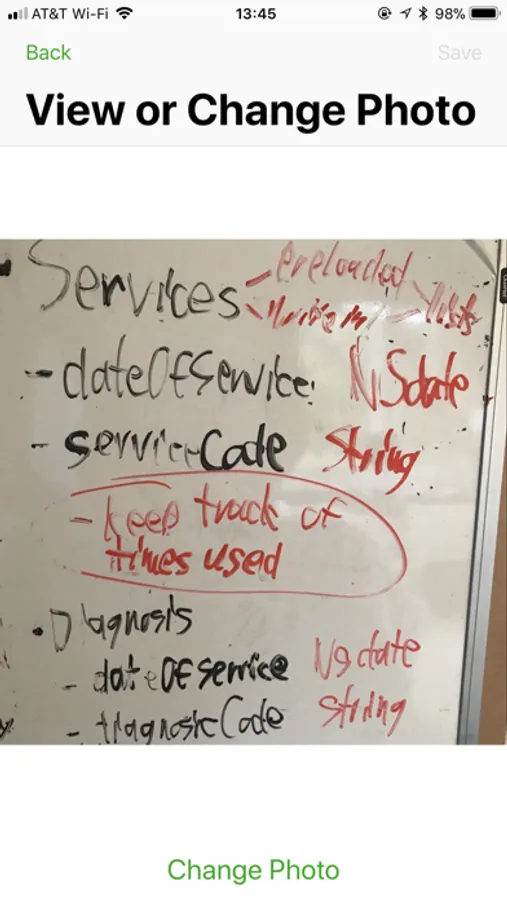 AT&T Wi-Fi 13:45 98%
Back Save
View or Change Photo
Services - Preloaded
- Write in - lists
- dateOfService: NSdate
- serviceCode String
- keep track of
times used
• Diagnosis
- dateOfService NSdate
- diagnosticCode String
Change Photo